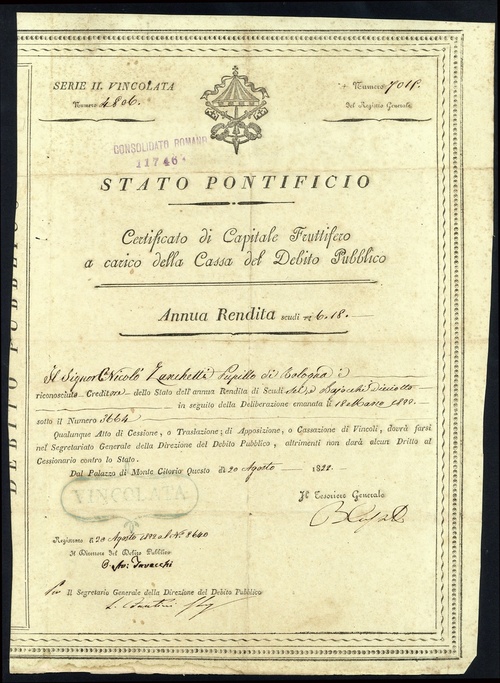 SERIE II. VINCOLATA
Numero 4806.
Numero 7018.
del Registro Generale
CONSOLIDATO ROMANO
11746
STATO PONTIFICIO
Certificato di Capitale Fruttifero
a carico della Cassa del Debito Pubblico
Annua Rendita scudi 6.18.
Il Signor Nicolò Zanchelli Pupillo di Bologna è
riconosciuto Creditore dello Stato dell'annua Rendita di Scudi sei, e Bajocchi Diciotto
in seguito della Deliberazione emanata li 18 Marzo 1822.
sotto il Numero 3664
Qualunque Atto di Cessione, o Traslazione; di Apposizione, o Cassazione di Vincoli, dovrà farsi
nel Segretariato Generale della Direzione del Debito Pubblico, altrimenti non darà alcun Dritto al
Cessionario contro lo Stato.
Dal Palazzo di Monte Citorio Questo dì 20 Agosto 1822.
VINCOLATA
Il Tesoriere Generale
Registrato li 20 Agosto 1822 al N.° 8640
Il Direttore del Debito Pubblico
Per Il Segretario Generale della Direzione del Debito Pubblico
DEBITO PUBBLICO